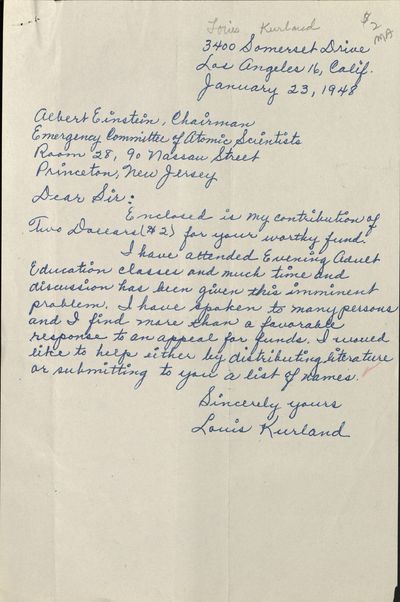 Louis Kurland
$2
MA
3400 Somerset Drive
Los Angeles 16, Calif.
January 23, 1948
Albert Einstein, Chairman
Emergency Committee of Atomic Scientists
Room 28, 90 Nassau Street
Princeton, New Jersey
Dear Sir:
Enclosed is my contribution of
Two Dollars ($2) for your worthy fund.
I have attended Evening Adult
Education classes and much time and
discussion has been given this imminent
problem. I have spoken to many persons
and I find more than a favorable
response to an appeal for funds. I would
like to help either by distributing literature
or submitting to you a list of names.
Sincerely yours
Louis Kurland